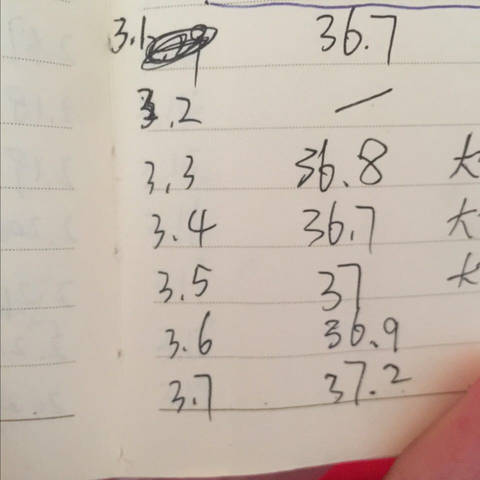 3.1 36.7
3.2 —
3.3 36.8
3.4 36.7
3.5 37
3.6 36.9
3.7 37.2